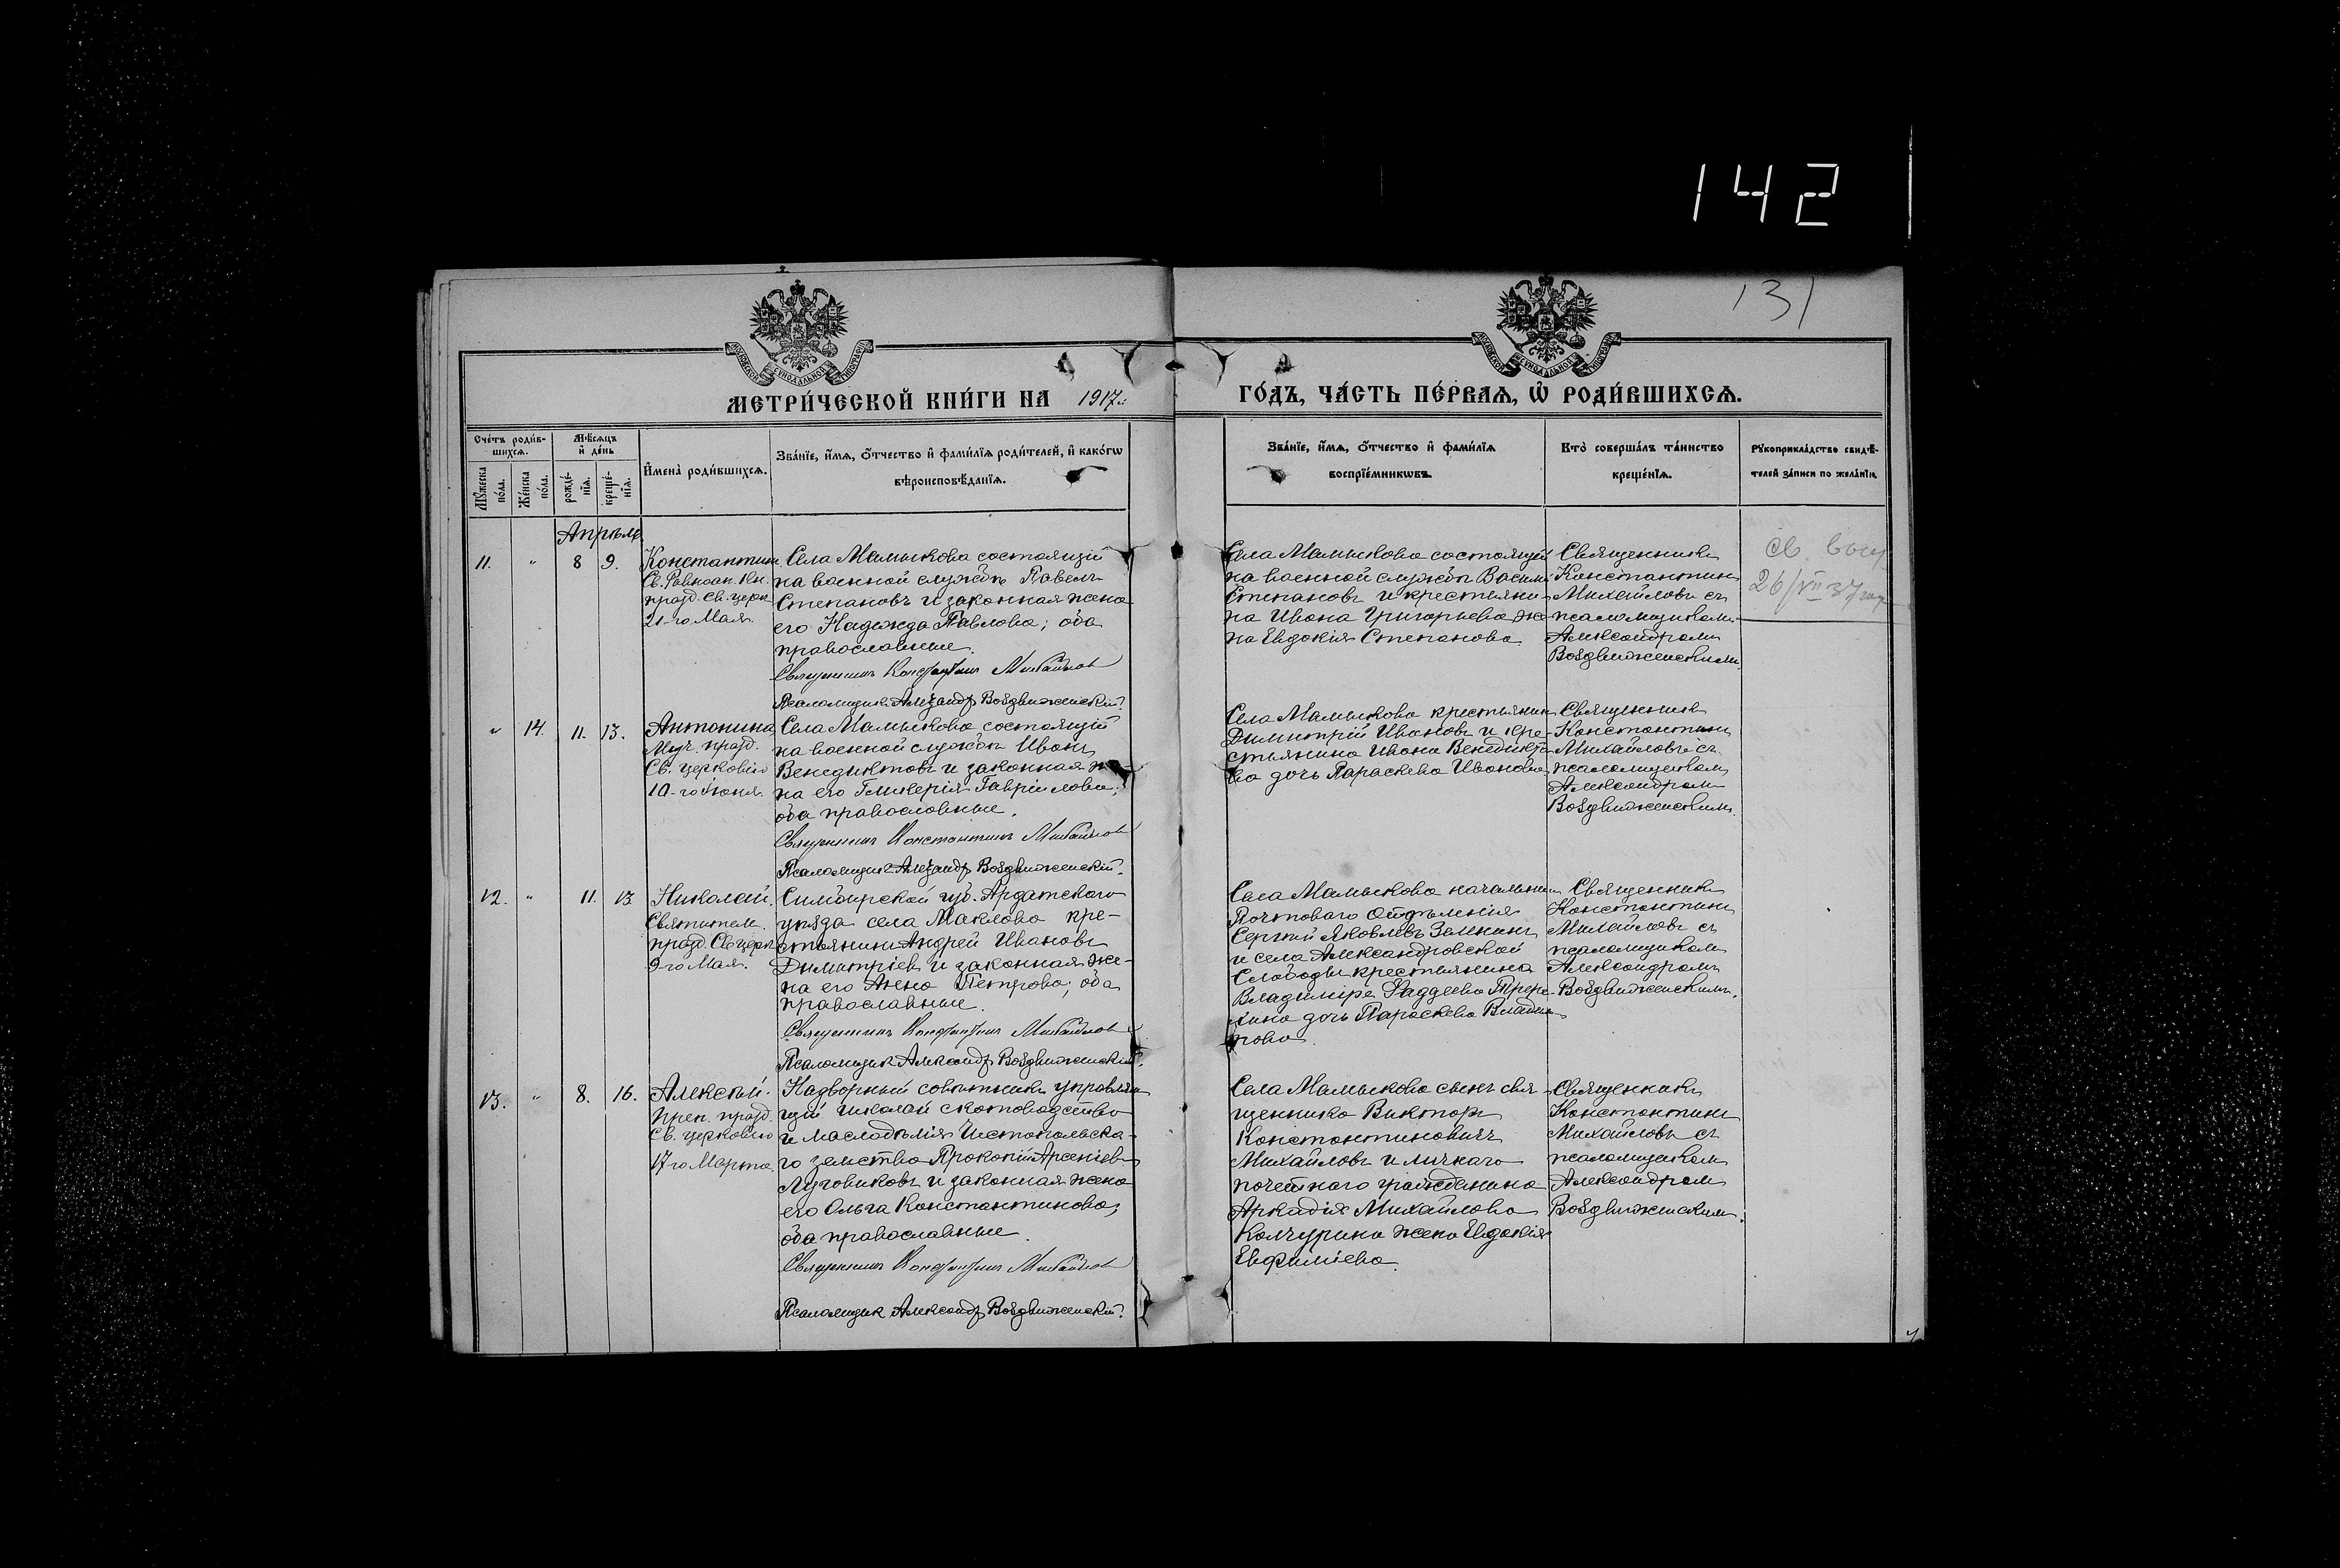 142
131
МОСКОВСКОЙ СѴНОДАЛЬНОЙ ТИПОГРАФІИ
МОСКОВСКОЙ СѴНОДАЛЬНОЙ ТИПОГРАФІИ
МЕТРИ́ЧЕСКОЙ КНИ́ГИ НА 1917 г.
ГО́ДЪ, ЧА́СТЬ ПЕ́РВАѦ, Ѽ РОДИ́ВШИХСѦ.
Сче́тъ роди́в-
шихсѧ.
Мꙋ́жеска
по́ла.
Же́нска
по́ла.
Мѣ́сѧцъ
и҆ де́нь
рожде́-
нїѧ.
креще́-
нїѧ.
И҆мена̀ роди́вшихсѧ.
Зва́нїе, и҆́мѧ, ѻ҆́тчество и҆ фами́лїѧ роди́телей, и҆ како́гѡ
вѣроисповѣ́данїѧ.
Зва́нїе, и҆́мѧ, ѻ҆́тчество и҆ фами́лїѧ
воспрїе́мникѡвъ.
Кто̀ соверша́лъ та́инство
креще́нїѧ.
Рꙋкоприкла́дство свидѣ́-
телей за́писи по жела́нїю.
Апрѣль
11. " 8 9.
Константинъ
Св. Равноап. Кн.
празд. Св. церк.
21-го Мая.
Села Мамыкова состоящій
на военной службѣ Павелъ
Степановъ и законная жена
его Надежда Павлова; оба
православные.
Священникъ Константинъ Михайлов
Псаломщикъ Александр Воздвиженскій.
Села Мамыкова состоящій
на военной службѣ Василій
Степановъ и крестьяни-
на Ивана Григорьева же-
на Евдокія Степанова.
Священникъ
Константинъ
Михайловъ съ
псаломщикомъ
Александромъ
Воздвиженскимъ.
св. выд
26/VII 37 год
" 14. 11. 13.
Антонина
Муч. празд.
Св. церковію
10-го Іюня.
Села Мамыкова состоящій
на военной службѣ Иванъ
Венедиктовъ и законная же
на его Гликерія Гавріилова;
оба православные.
Священникъ Константинъ Михайлов
Псаломщикъ Александр Воздвиженскій.
Села Мамыкова крестьянинъ
Димитрій Ивановъ и кре-
стьянина Ивана Венедикто-
ва дочь Параскева Иванова
Священникъ
Константинъ
Михайловъ съ
псаломщикомъ
Александромъ
Воздвиженскимъ.
12. " 11. 13
Николай.
Святител.
празд. Св. церк.
9-го Мая.
Симбирской губ. Ардатскаго
уѣзда села Маклова кре-
стьянинъ Андрей Ивановъ
Димитріевъ и законная же-
на его Анна Петрова; оба
православные.
Священникъ Константинъ Михайлов
Псаломщик Александр Воздвиженскій.
Села Мамыкова начальникъ
Почтоваго Отдѣленія
Сергѣй Яковлевъ
и села Александровской
Слободы крестьянина
Владиміра Фаддеева
дочь Параскева Влади-
мірова.
Священникъ
Константинъ
Михайловъ съ
псаломщикомъ
Александромъ
Воздвиженскимъ.
13. " 8. 16.
Алексѣй.
Преп. празд.
Св. церковію
17-го Марта.
Надворный совѣтникъ управляю-
щій школой скотоводства
и маслодѣлія Чистопольска-
го земства Прокопій Арсеніевъ
Луговиковъ и законная жена
его Ольга Константинова;
оба православные.
Священникъ Константинъ Михайлов
Псаломщик Александр Воздвиженскій.
Села Мамыкова сынъ свя-
щенника Викторъ
Константиновичъ
Михайловъ и личнаго
почетнаго гражданина
Аркадія Михайлова
Качурина жена Евдокія
Евфиміева.
Священникъ
Константинъ
Михайловъ съ
псаломщикомъ
Александромъ
Воздвиженскимъ.